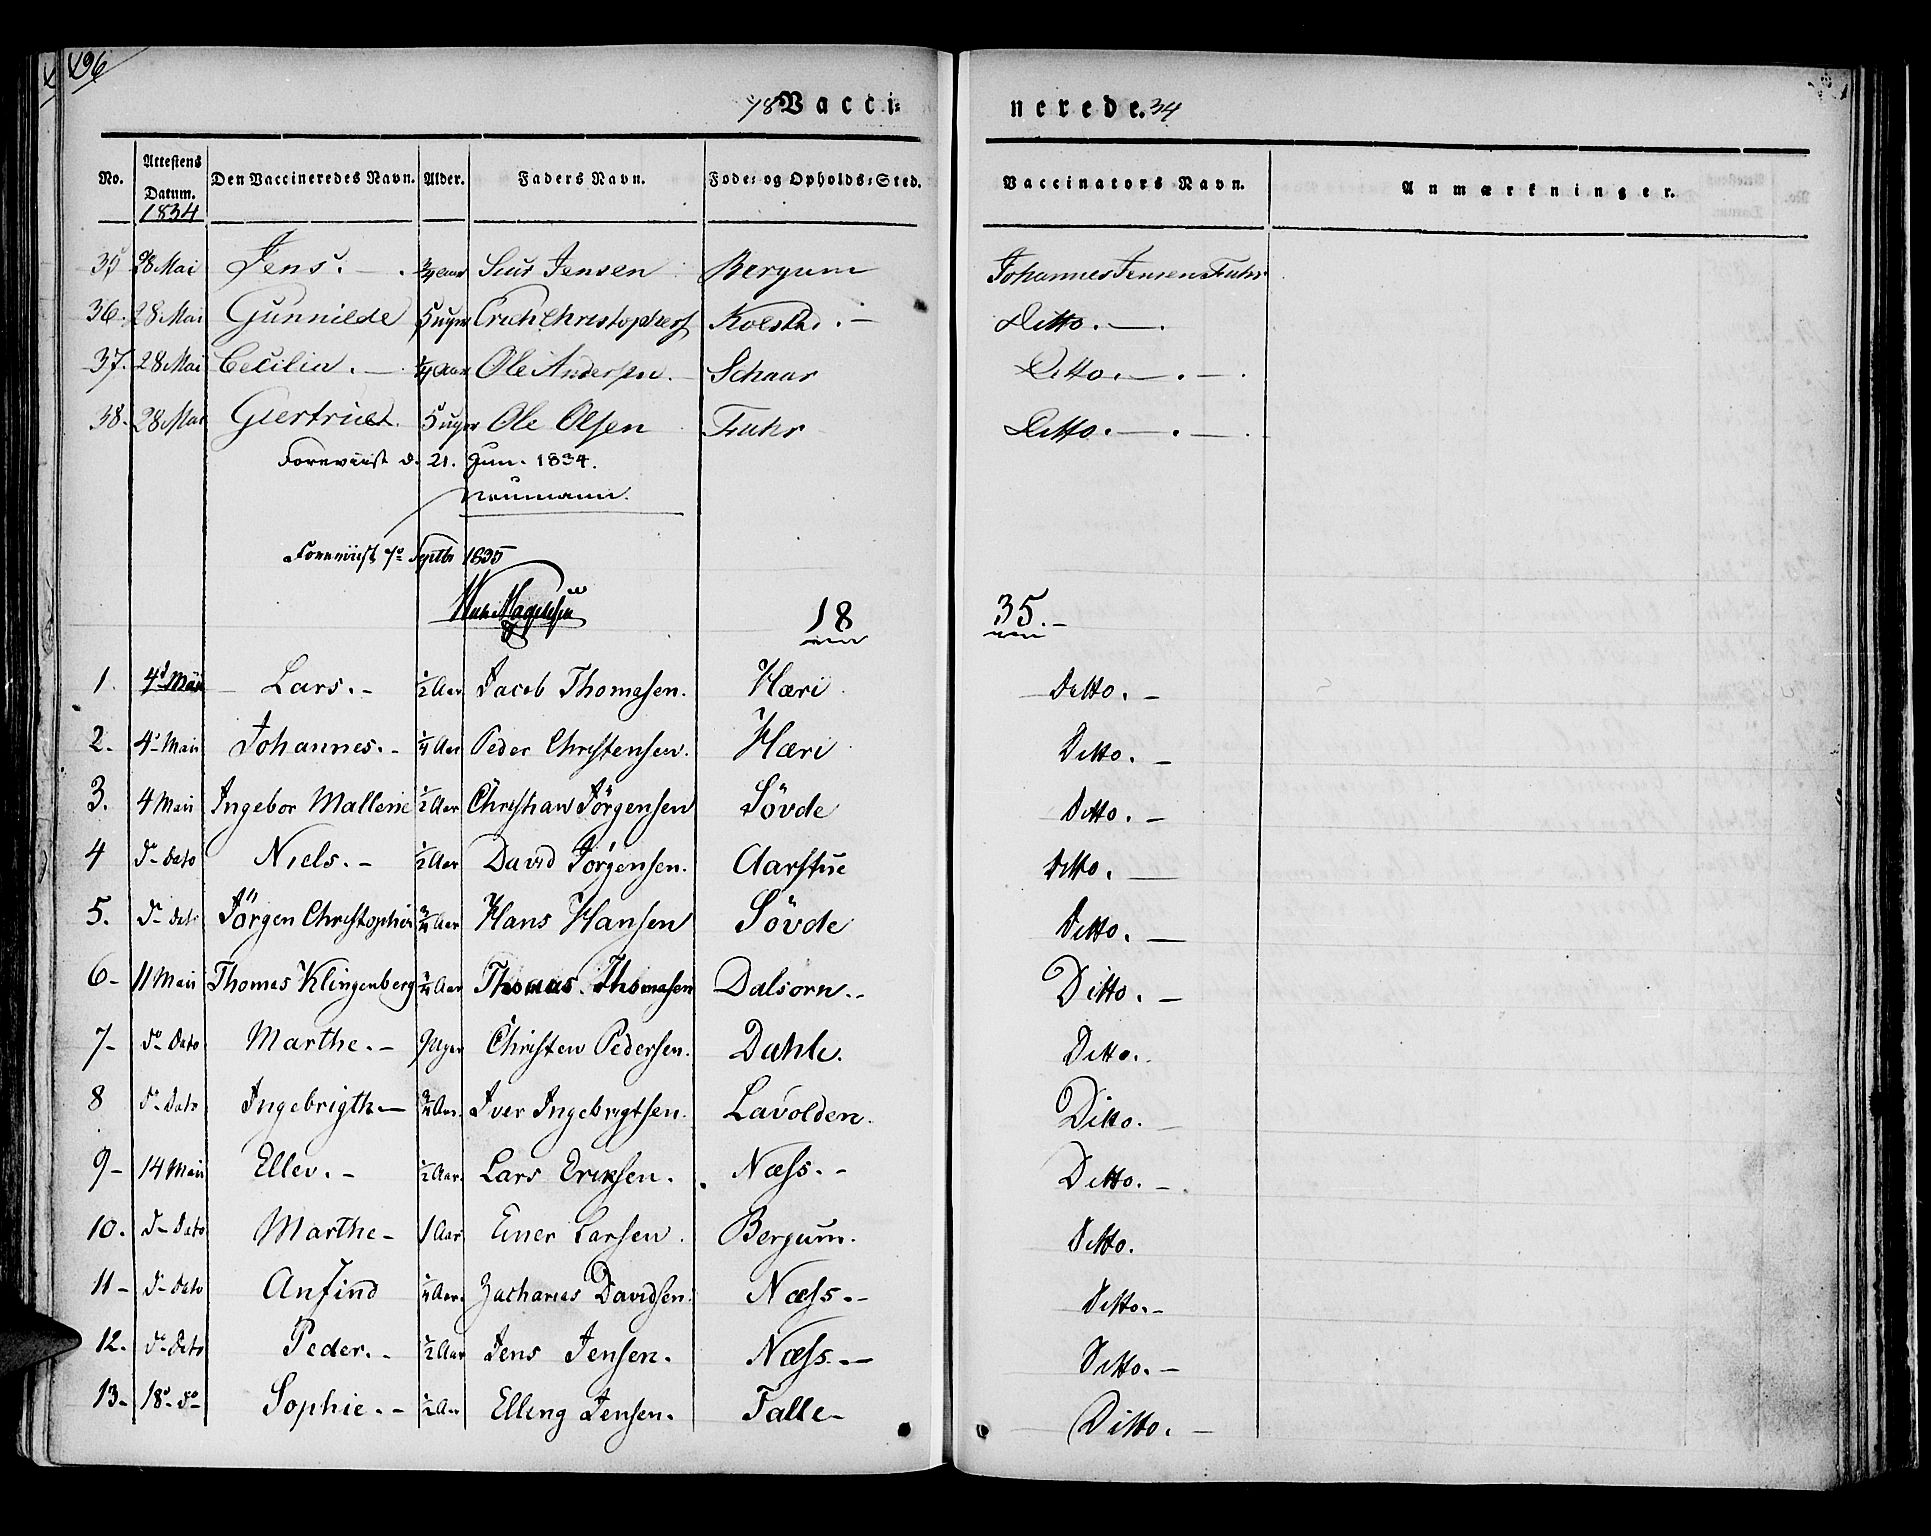 196
18 Vacci= nerede. 34
No. Attestens Datum. 1834 Den Vaccineredes Navn. Alder. Faders Navn. Føde= og Opholds=Sted. Vaccinators Navn. Anmærkninger.
35 28 Mai Jens. - 3/4 Aar Siur Jensen Bergum Johannes Jensen Fuhr
36. 28 Mai Gunnilde 5 uger Erich Christophers Kolstad. - Ditto. -
37. 28 Mai Cecilia. - 1/4 Aar Ole Andersen. - Schaar Ditto. - . -
38. 28 Mai Giertrud. 5 uger Ole Olsen Fuhr Ditto. - . -
Foreviist d. 21. Jun. 1834.
Neumann.
Foreviist 7de Septbr 1835
18 35. -
1. 4d Maii Lars. - 1/2 Aar Jacob Thomasen. Hæri Ditto. -
2. 4d Maii Johannes. - 1/4 Aar Peder Christensen. Hæri Ditto. -
3. 4 Maii Ingebor Mallene 1/2 Aar Christian Jörgensen Sövde Ditto. -
4 do Dato Niels. - 1/2 Aar David Jörgensen. Aarstue Ditto. -
5. do Dato Jörgen Christopher 3/4 Aar Hans Hansen Sövde Ditto. -
6 - 11 Maii Thomas Klingenberg 1/4 Aar Thomas Thomasen Dalsorn. - Ditto. -
7 - do Dato Marthe. - 9 Uger Christen Pedersen. Dahle. Ditto.
8 do Dato Ingebrigth - 3/4 Aar. Iver Ingebrigtsen. Lavolden. Ditto. -
9 - 14 Maii Ellev. - 1/2 Aar. Lars Eriksen. Næss. - Ditto. -
10. do Dato Marthe - 1 Aar Einer Larsen. Bergum. Ditto.
11 - do Dato Anfind 1/4 Aar. Zacharias Davidsen. Næss. - Ditto. -
12. do Dato Peder. - 1/2 Aar Jens Jensen. Næss. - Ditto. -
13 - 18d do Sophie. - 1/2 Aar Elling Jensen. Falle - Ditto. -